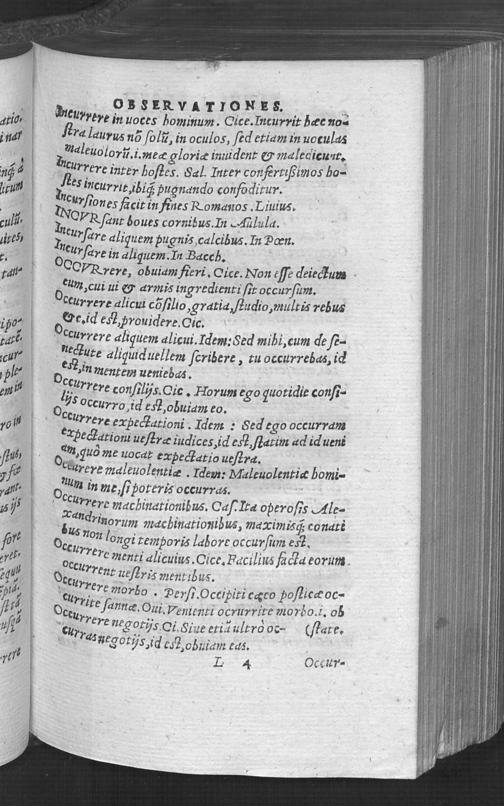 OBSERVATIONES.
Incurrere in uoces hominum. Cice. Incurrit hæc no-
stra laurus nõ solũ, in oculos, sed etiam in uoculas
maleuolorũ.i.meæ gloriæ inuident & maledicunt.
Incurrere inter hostes. Sal. Inter confertißimos ho-
stes incurrit, ibiq́; pugnando confoditur.
Incursiones facit in fines Romanos. Liuius.
INCVRsant boues cornibus. In Aulula.
Incursare aliquem pugnis, calcibus. In Pœn.
Incursare in aliquem. In Bacch.
OCCVRrere, obuiam fieri. Cice. Non esse deiectum
eum, cui ui & armis ingredienti sit occursum.
Occurrere alicui cõsilio, gratia, studio, multis rebus
&c, id est, prouidere. Cic.
Occurrere aliquem alicui. Idem: Sed mihi, cum de se-
nectute aliquid uellem scribere, tu occurrebas, id
est, in mentem ueniebas.
Occurrere consilijs. Cic. Horum ego quotidie consi-
lijs occurro, id est, obuiam eo.
Occurrere expectationi. Idem: Sed ego occurram
expectationi uestræ iudices, id est, statim ad id ueni
am, quò me uocat expectatio uestra.
Occurrere maleuolentiæ. Idem: Maleuolentiæ homi-
num in me, si poteris occurras.
Occurrere machinationibus. Cæs. Ita operosis Ale-
xandrinorum machinationibus, maximisq́; conati
bus non longi temporis labore occursum est.
Occurrere menti alicuius. Cice. Facilius facta eorum
occurrent uestris mentibus.
Occurrere morbo. Persi. Occipiti cæco posticæ oc-
currite sannæ. Oui. Venienti ocrurrite morbo.i. ob
Occurrere negotijs. Ci. Siue etiã ultrò oc- (state.
curras negotijs, id est, obuiam eas.
L 4 Occur-
atio.
inar
inq́; à
ditum
culũ.
uites,
t.
tan-
ipo-
tatẽ.
ncur-
ple-
em in
ro in
stus,
rant.
us ijs
fore
eret.
sequu
ptã,
stá
usq́ã
rrere